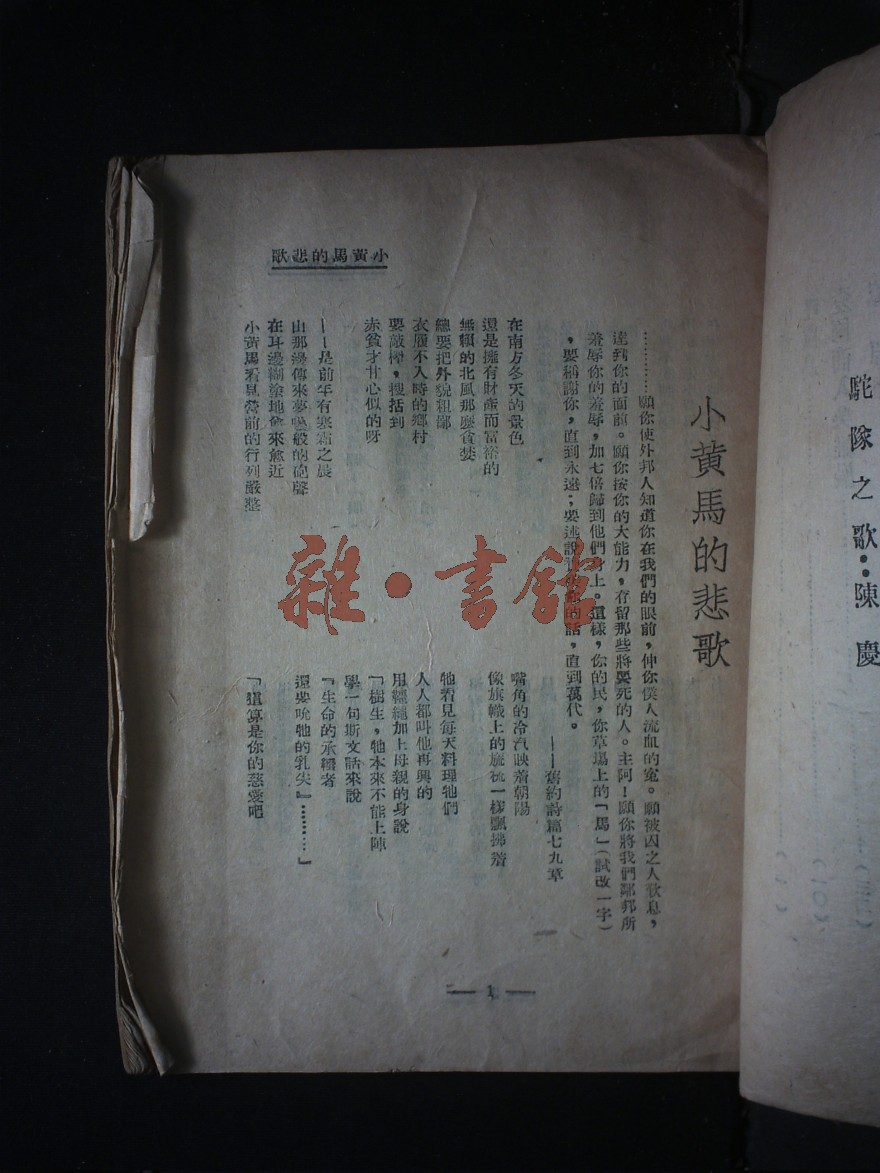 駝隊之歌：陳慶
小黃馬的悲歌
小黃馬的悲歌
…………願你使外邦人知道你在我們的眼前，伸你僕人流血的寃。願被囚之人歎息，
達到你的面前。願你按你的大能力，存留那些將要死的人。主阿！願你將我們鄰邦所
羞辱你的羞辱，加七倍歸到他們身上。這樣，你的民，你草場上的「馬」（試改一字）
，要稱謝你，直到永遠；要述說 的話，直到萬代。
——舊約詩篇七九章
在南方冬天的景色
還是擁有財產而富裕的
無賴的北風那麼貪婪
總要把外貌粗鄙
衣履不入時的鄉村
要敲榨，搜括到
赤貧才甘心似的呀
——是前年有寒霜之晨
山那邊傳來夢囈般的砲聲
在耳邊糊塗地愈來愈近
小黃馬看見營前的行列嚴整
嘴角的冷汽映着朝陽
像旗幟上的旒毓一樣飄拂着
牠看見每天料理牠們
人人都叫他再興的
用韁繩加上母親的身說
「樹生，牠本來不能上陣
學一句斯文話來說
『生命的承繼者
還要吮牠的乳尖』…………」
「這算是你的慈愛吧
— 1 —
雜·書館